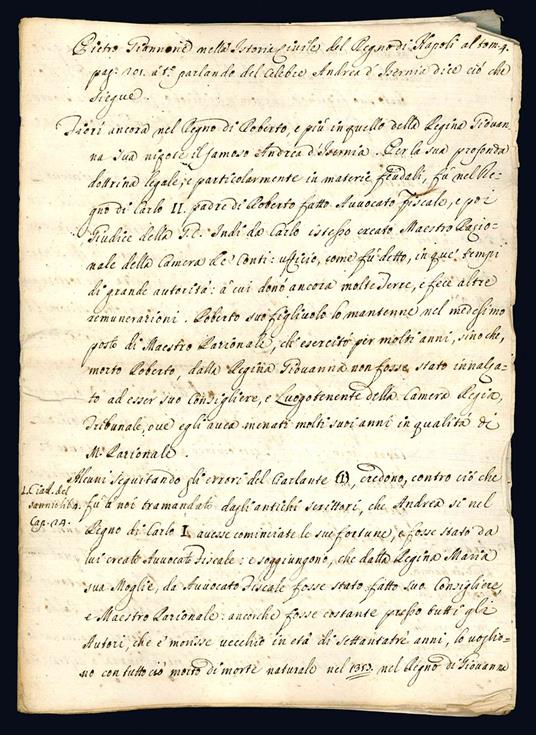 Pietro Giannone nella Istoria Civile del Regno di Napoli al tom. 4.
pag. 101. a t.º parlando del celebre Andrea d'Isernia dice ciò che
siegue.
Fiorì ancora, nel Regno di Roberto, e più in quello della Regina Giovan-
na sua nipote il famoso Andrea d'Isernia. Per la sua profonda
dottrina legale, e particolarmente in materie feudali, fù nel Re-
gno di Carlo II. padre di Roberto fatto Avvocato Fiscale, e poi
Giudice della G.C. Indi da Carlo istesso creato Maestro Razio-
nale della Camera de Conti: ufficio, come fù detto, in que' tempi
di grande autorità: à cui donò ancora molte Terre, e fece altre
remunerazioni. Roberto suo figliuolo lo mantenne nel medesimo
posto di Maestro Razionale, ch'esercitò per molti anni, sino che,
morto Roberto, dalla Regina Giovanna non fosse stato innalza-
to ad esser suo Consigliere, e Luogotenente della Camera Regia,
Tribunale, ove egli avea menati molti suoi anni in qualità di
M.º Razionale.
Alcuni seguitando gli errori del Ciarlante (1), credono, contro ciò che
L. Ciarl. del
Sannio lib. 4.
Cap. 24.
fù à noi tramandato dagli antichi scrittori, che Andrea si nel
Regno di Carlo I. avesse cominciate le sue fortune, e fosse stato da
lui creato Avvocato Fiscale: e soggiungono, che dalla Regina Maria
sua Moglie, da Avvocato Fiscale fosse stato fatto suo Consigliere
e Maestro Razionale: ancorche fosse costante presso tutti gli
Autori, che e' morisse vecchio in età di settantatrè anni, lo voglio-
no con tutto ciò morto di morte naturale nel 1353. nel Regno di Giovanna